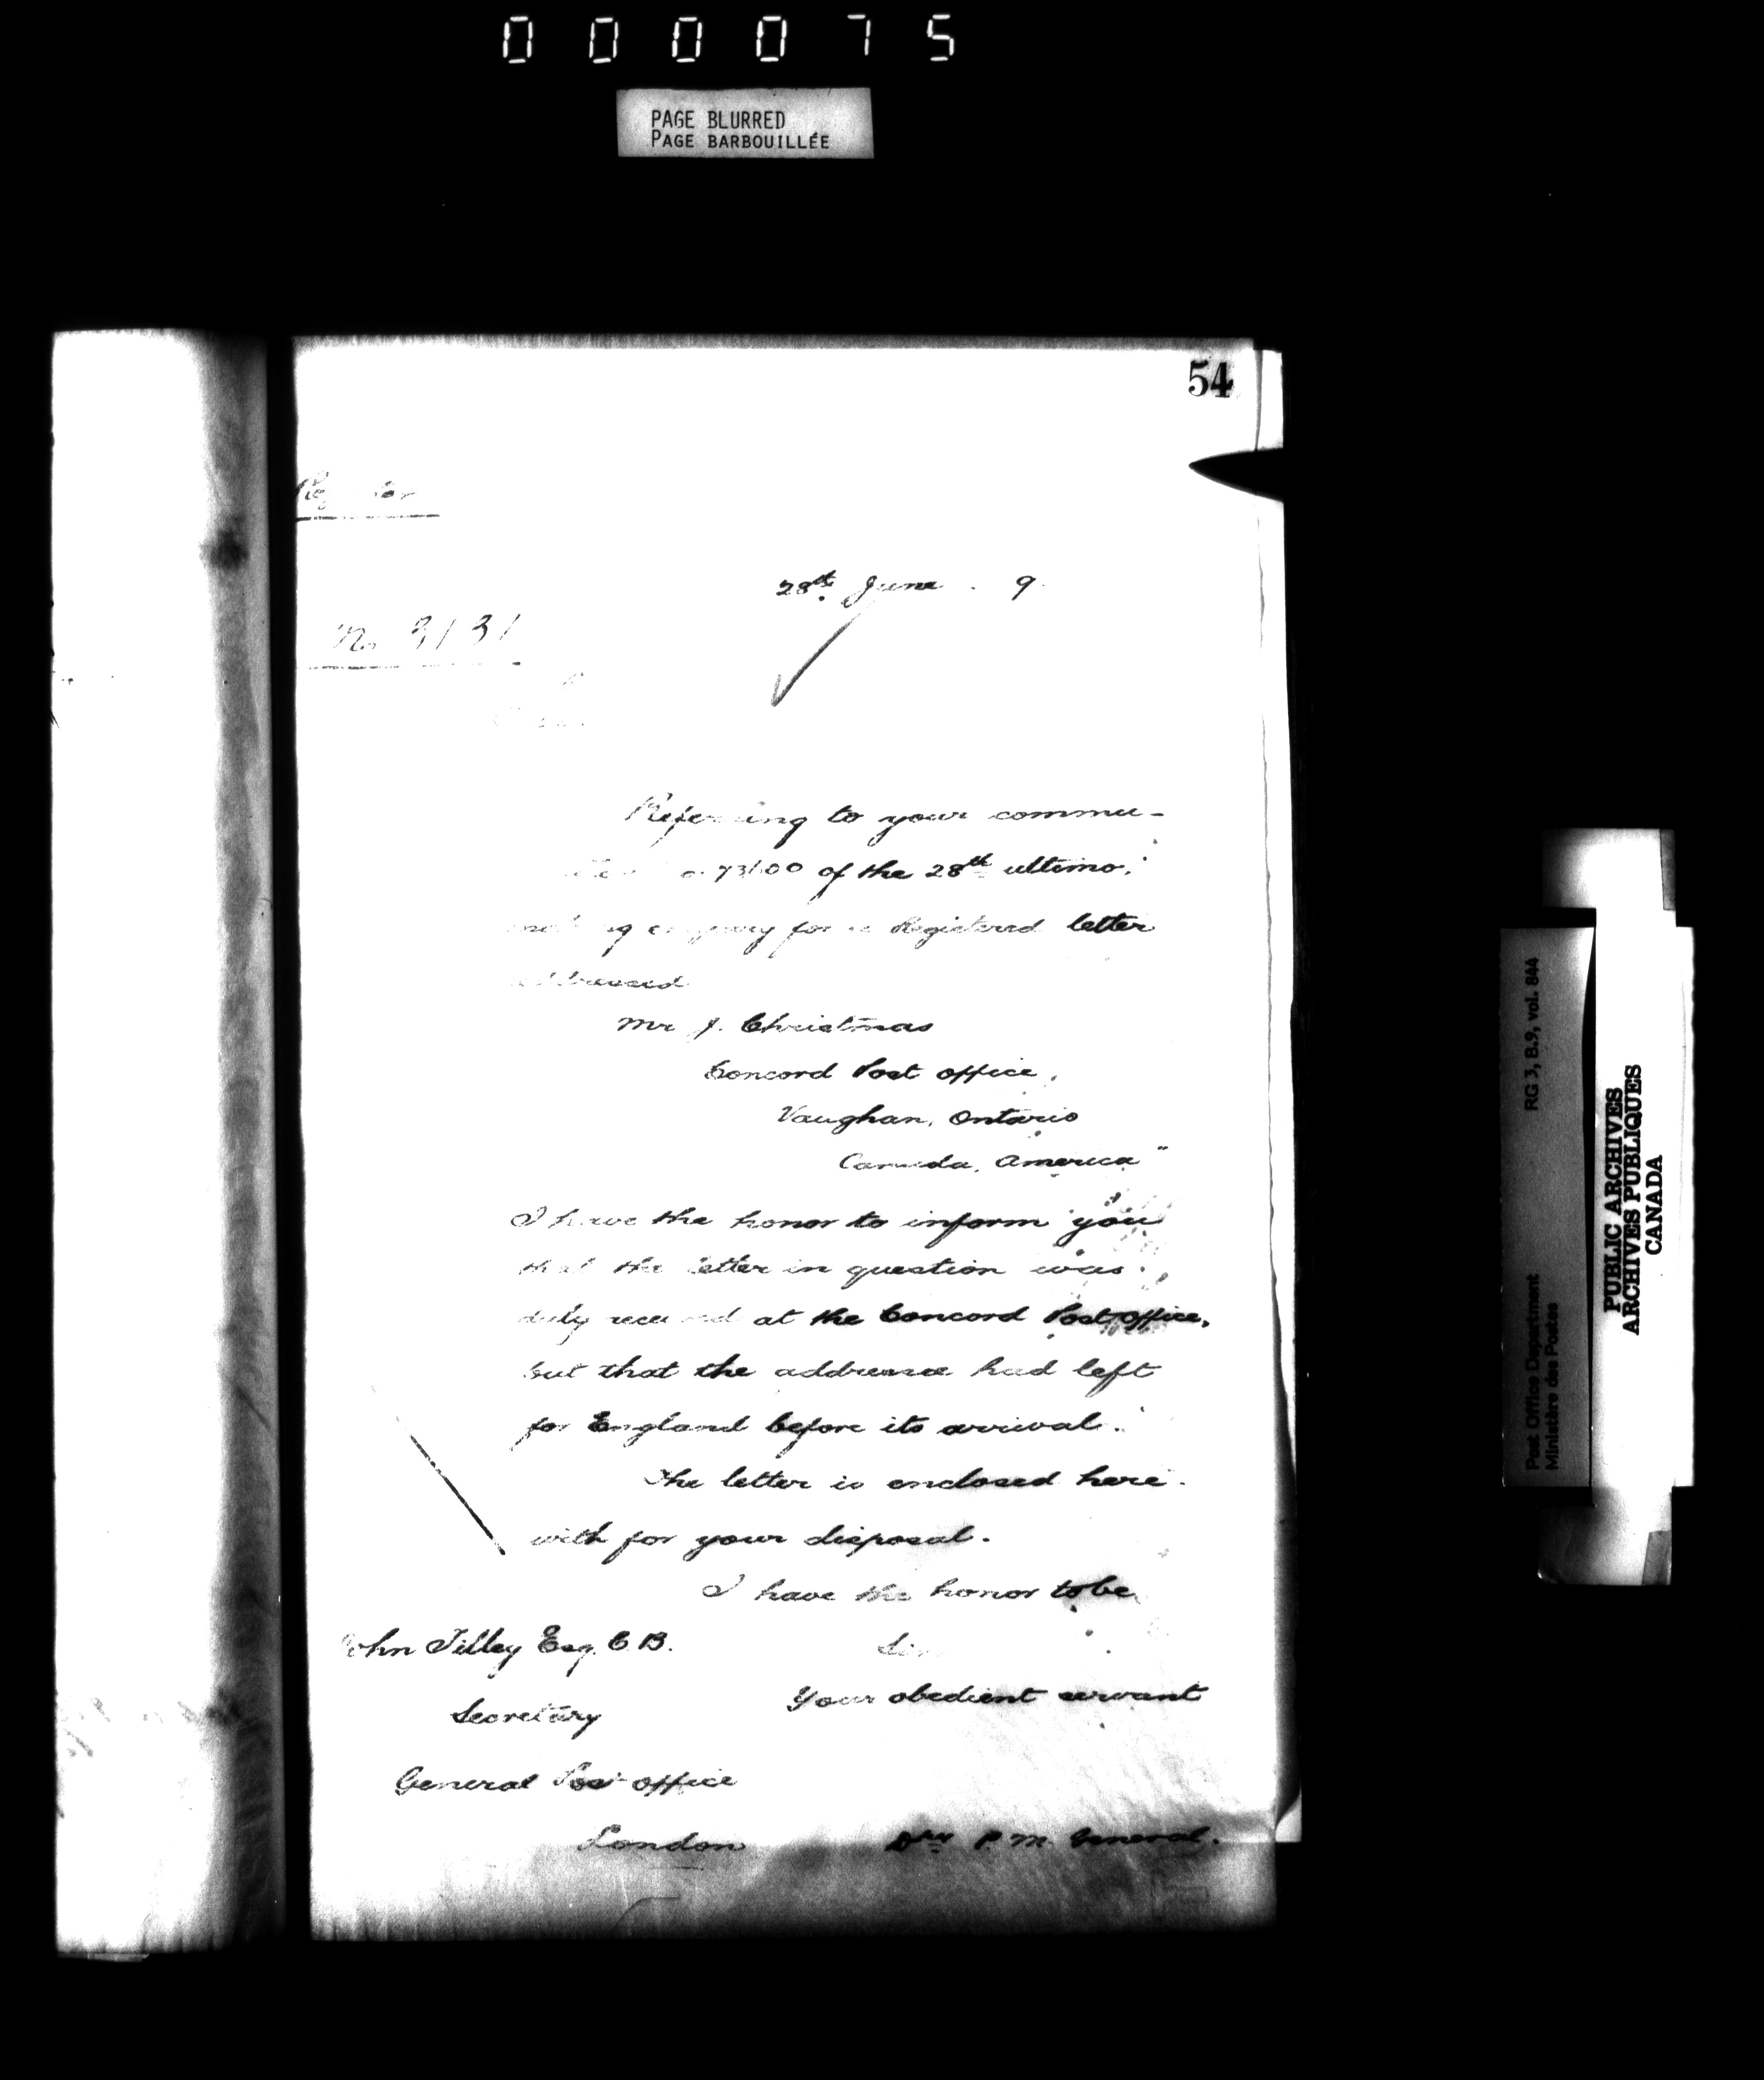 000075
PAGE BLURRED
PAGE BARBOUILLÉE
54
28th June . 9
No 3131
Referring to your commu-
of the 28th ultimo,
for Registered letter
addressed
Mr J. Christmas
Concord Post office,
Vaughan, Ontario
Canada, America"
I have the honor to inform you
that the letter in question was
duly received at the Concord Post office,
but that the addressee had left
for England before its arrival.
The letter is enclosed here-
with for your disposal.
I have the honor to be
Sir
Your obedient servant
John Tilley Esq. C B.
Secretary
General Post office
London
Dy P. M. General.
RG 3, B.9, vol. 844
Post Office Department
Ministère des Postes
PUBLIC ARCHIVES
ARCHIVES PUBLIQUES
CANADA